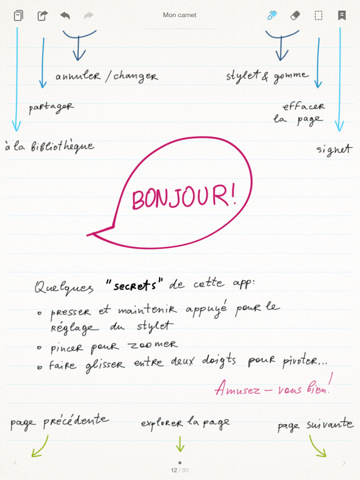 Mon carnet
annuler / changer
stylet & gomme
partager
effacer
la page
à la bibliothèque
signet
BONJOUR!
Quelques "secrets" de cette app:
presser et maintenir appuyé pour le
réglage du stylet
pincer pour zoomer
faire glisser entre deux doigts pour pivoter...
Amusez-vous bien!
page précédente
explorer la page
page suivante
12 / 90